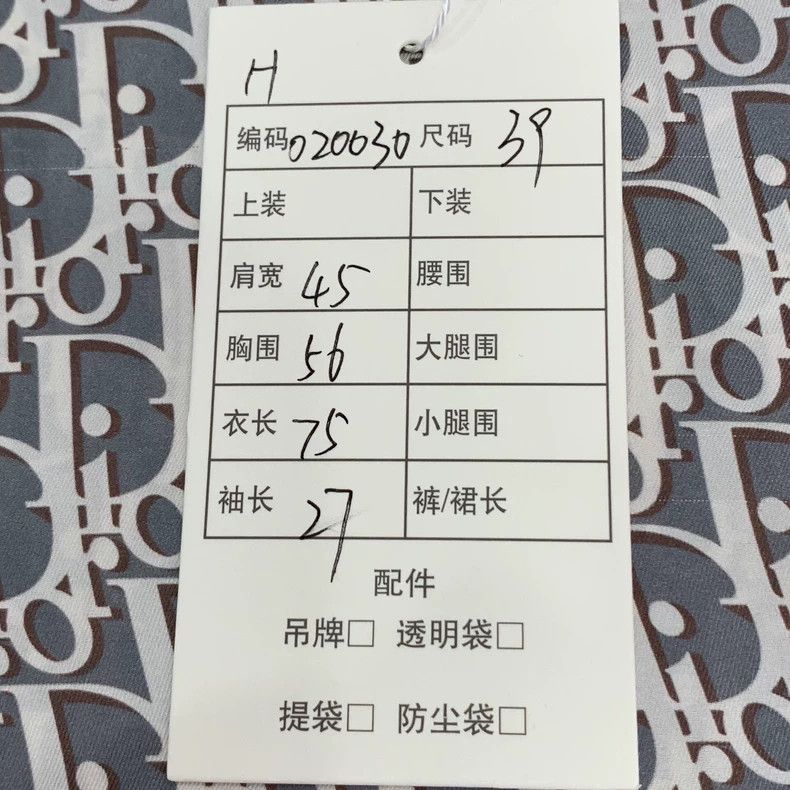 H
编码 020030 尺码 39
上装 下装
肩宽 45 腰围
胸围 56 大腿围
衣长 75 小腿围
袖长 27 裤/裙长
配件
吊牌□ 透明袋□
提袋□ 防尘袋□
Dior